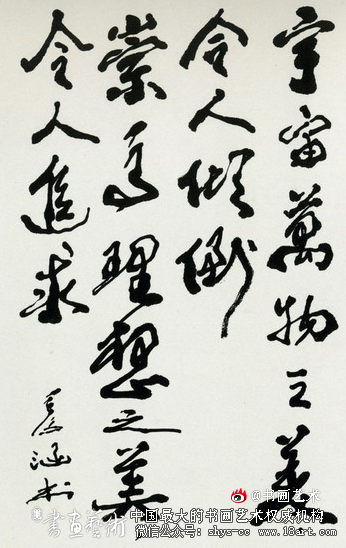 宇宙萬物之美
令人傾倒
崇高理想之美
令人追求
@书画艺术
書畫藝術
中国最大的书画艺术权威机构
微信公众号：shys-cc www.18art.com